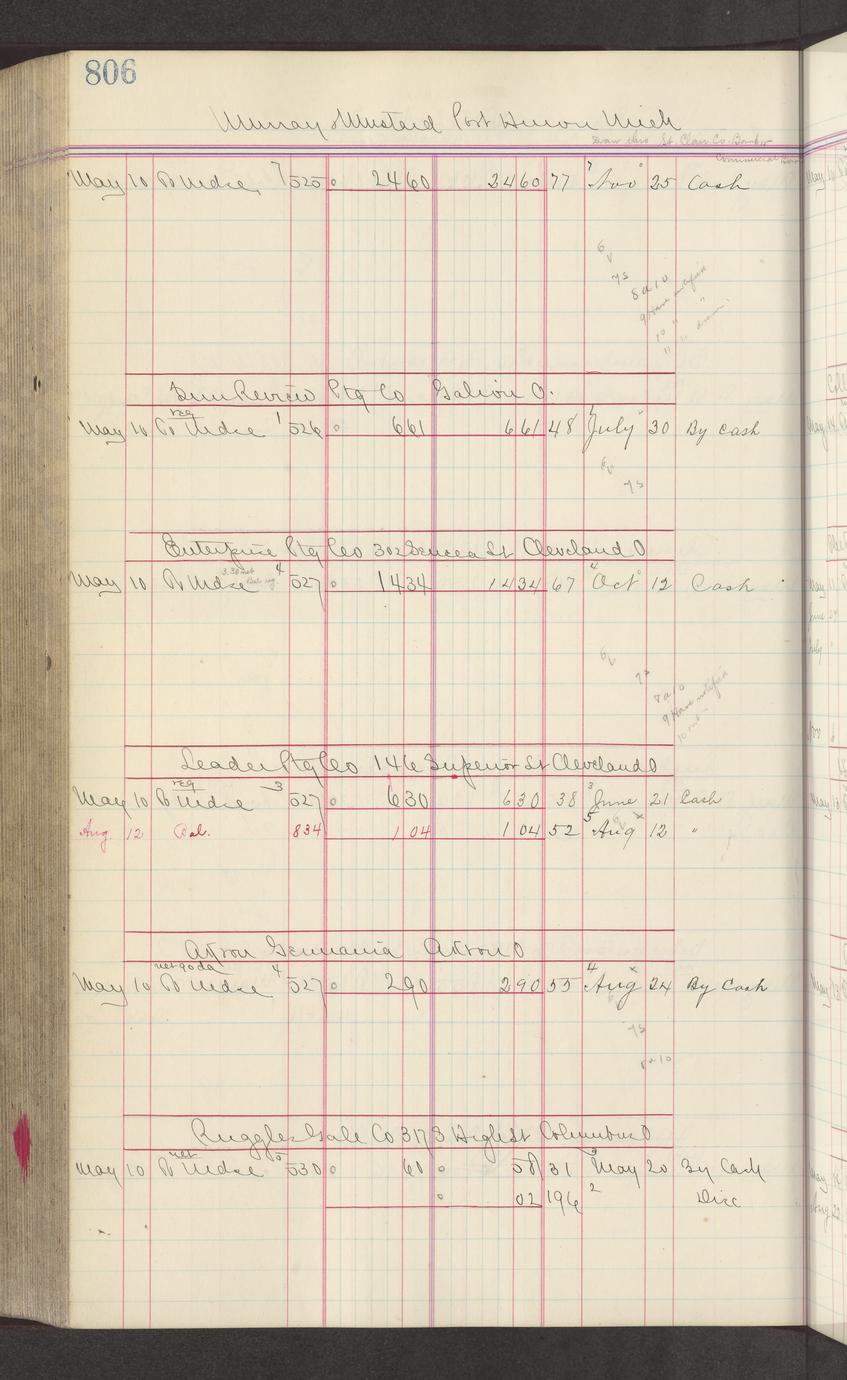 806
Murray & Mustard Port Huron Mich
Draw thro St. Clair Co. Bank or
Commercial Bank
May 10 To Mdse 7 525 0 2460 2460 77 7 Nov 25 Cash
6
75
8 a 10
9 Have notified
10 " "
11 " drawn
Sun Review Ptg Co Galion O.
reg
May 10 To Mdse 1 526 0 661 661 48 July 30 By Cash
6
75
Enterprise Ptg Co 302 Seneca St Cleveland O
3.30 net
May 10 To Mdse 4 527 0 1434 1434 67 Oct 12 Cash
6
8 a 10
9 Have notified
Leader Ptg Co 146 Superior St Cleveland O
reg
May 10 To Mdse 3 527 0 630 630 38 3 June 21 Cash
Aug. 12 Bal. 834 1 04 1 04 52 5 Aug x 12 "
Akron Germania Akron O
net 90 da
May 10 To Mdse 4 527 0 290 290 55 4 Aug x 24 By Cash
75
8 a 10
Ruggles Gale Co 317 S High St Columbus O
net
May 10 To Mdse 5 530 0 60 0 58 31 May 20 By Cash
0 02 196 2 Disc